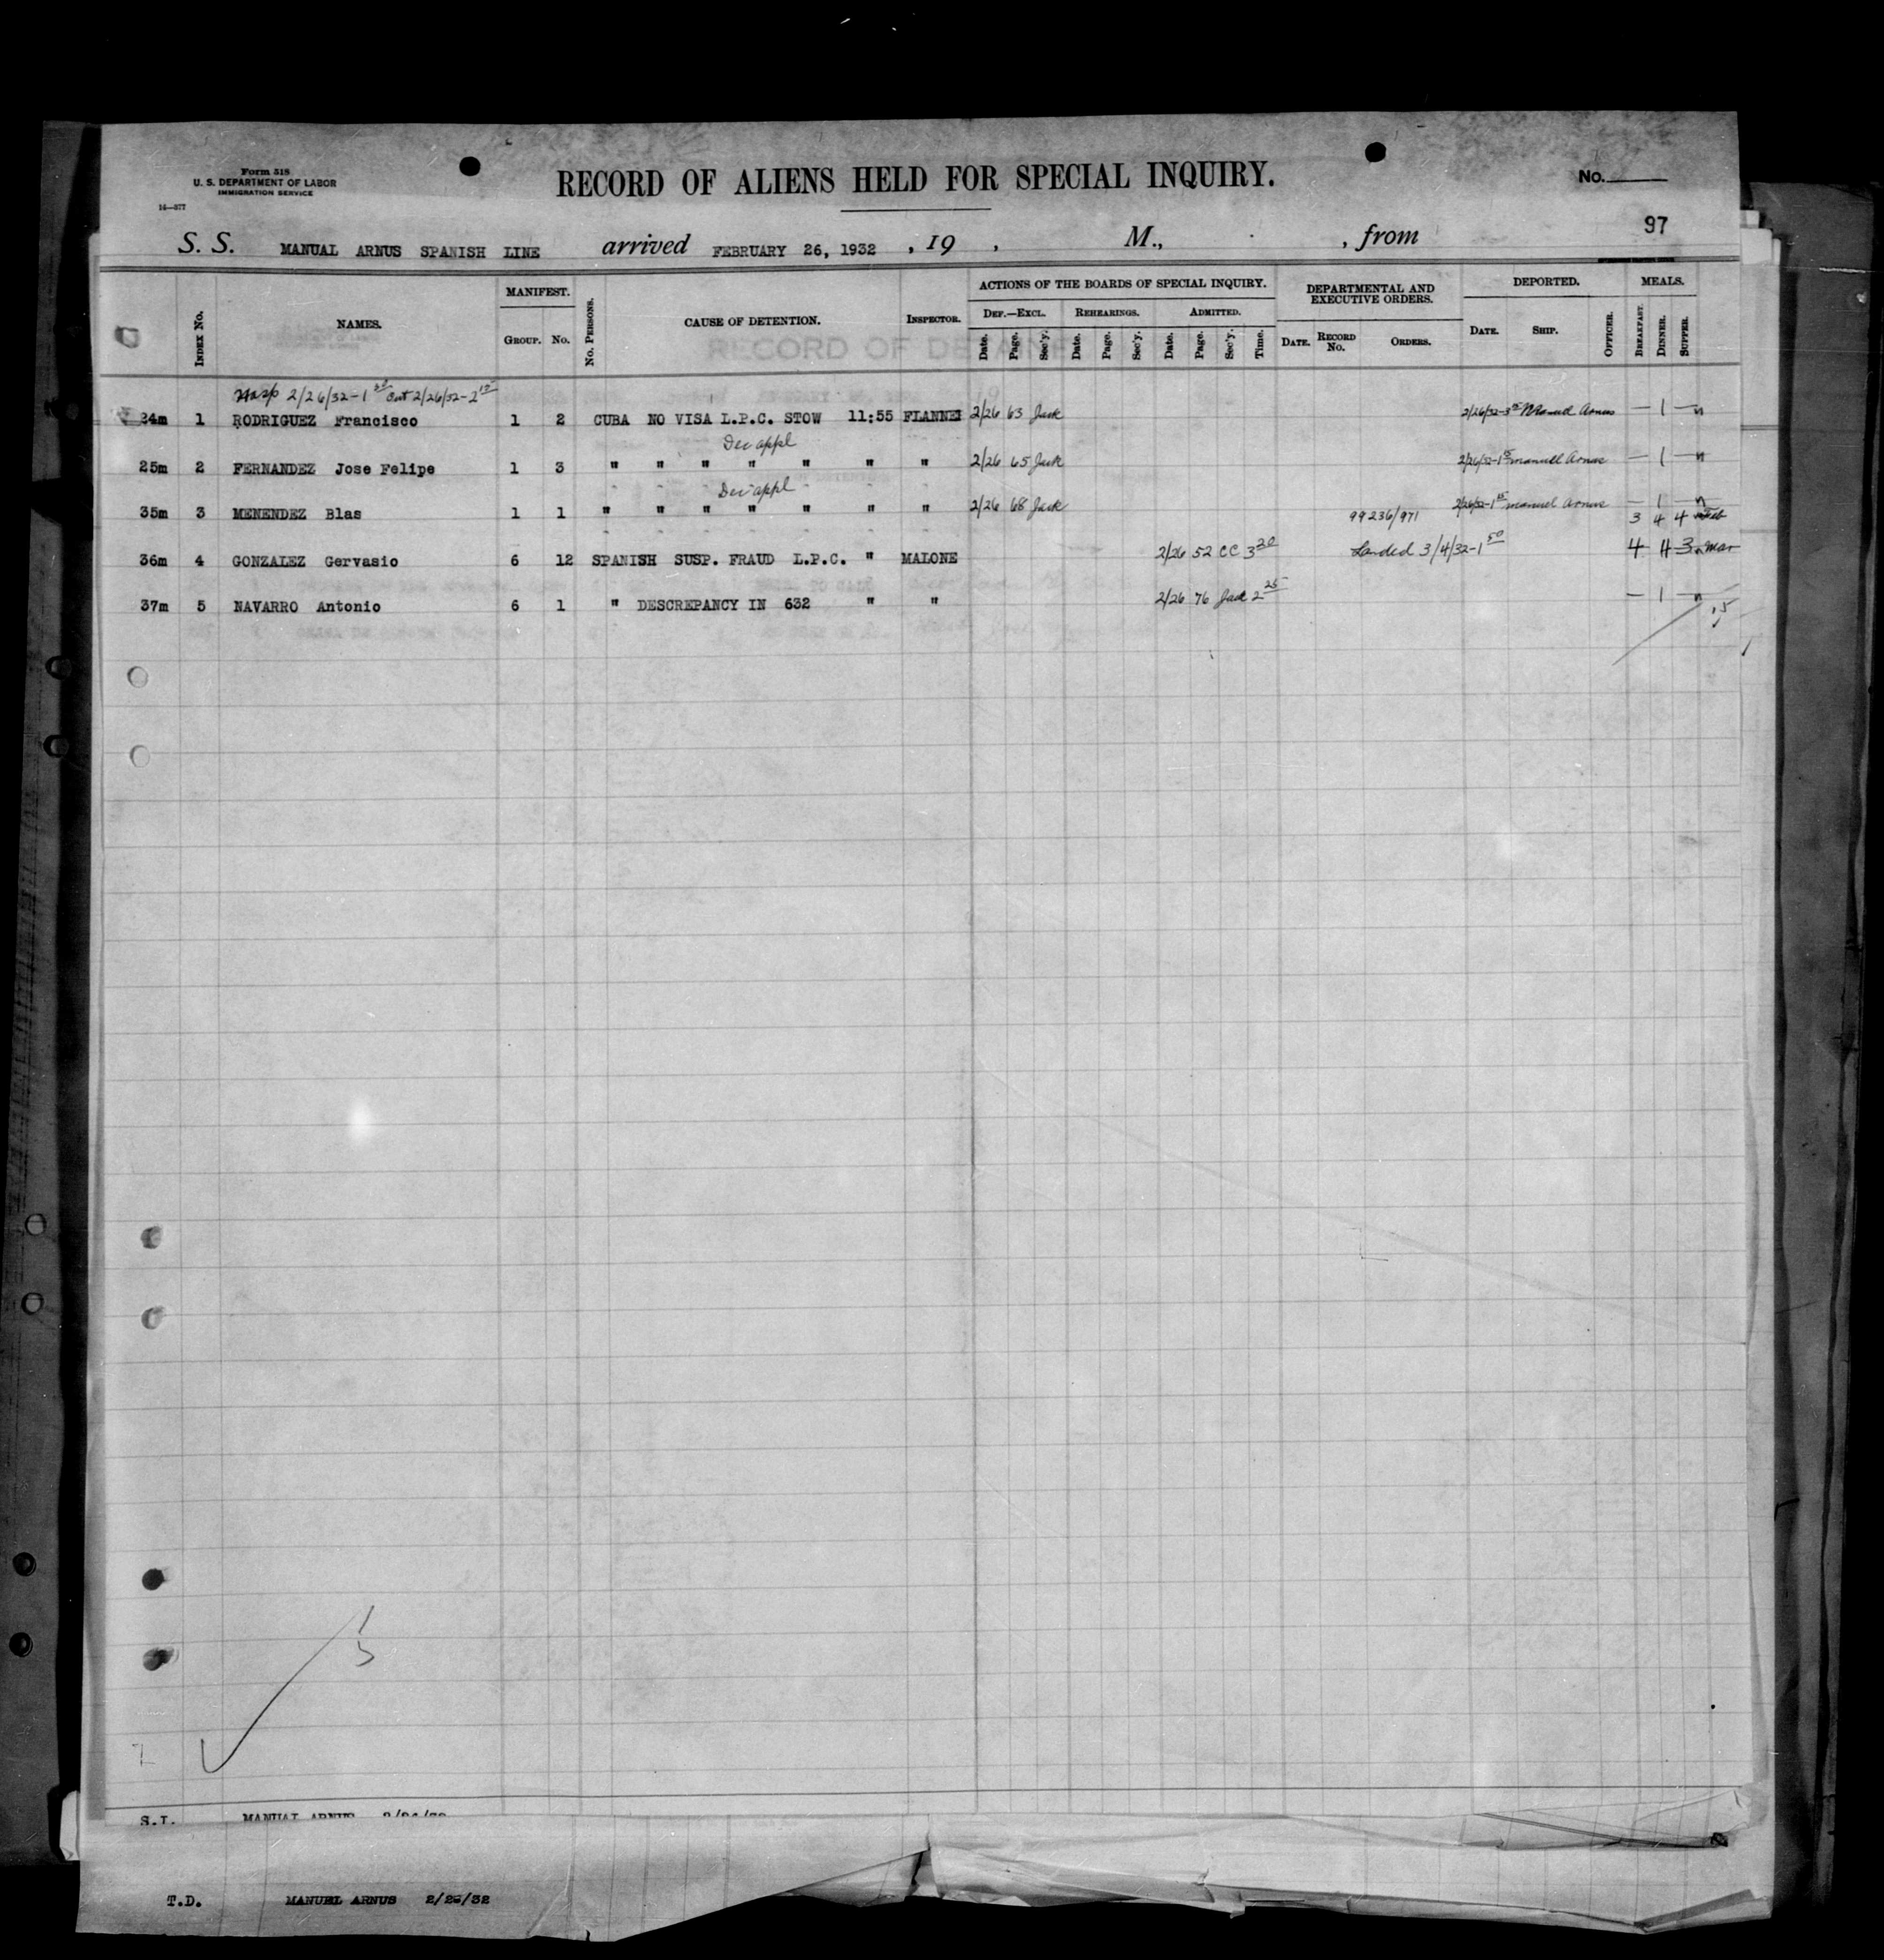 Form 518
U. S. DEPARTMENT OF LABOR
IMMIGRATION SERVICE
14—377
RECORD OF ALIENS HELD FOR SPECIAL INQUIRY.
No.
97
S. S. MANUAL ARNUS SPANISH LINE arrived FEBRUARY 26, 1932 , 19 , M., , from
INDEX No. NAMES. MANIFEST. GROUP. No. No. PERSONS. CAUSE OF DETENTION. INSPECTOR. ACTIONS OF THE BOARDS OF SPECIAL INQUIRY. DEF.—EXCL. Date. Page. Sec'y. REHEARINGS. Date. Page. Sec'y. ADMITTED. Date. Page. Sec'y. Time. DEPARTMENTAL AND EXECUTIVE ORDERS. DATE. RECORD No. ORDERS. DEPORTED. DATE. SHIP. OFFICER. MEALS. BREAKFAST. DINNER. SUPPER.
RECORD OF
Hosp 2/26/32-1 30 Out 2/26/32-2 15
24m 1 RODRIGUEZ Francisco 1 2 CUBA NO VISA L.P.C. STOW 11:55 FLANNE 2/26 63 Jack 2/26/32-3 Manuel Arnus — 1 — n
Dec appl
25m 2 FERNANDEZ Jose Felipe 1 3 " " " " " " " 2/26 65 Jack 2/26/32-1 manuel Arnus — 1 — n
Dec appl
35m 3 MENENDEZ Blas 1 1 " " " " " " " 2/26 68 Jack 2/26/32-1 manuel Arnus — 1 — n
99236/971 3 4 4 Feb
36m 4 GONZALEZ Gervasio 6 12 SPANISH SUSP. FRAUD L.P.C. " MALONE 2/26 52 CC 3 20 Landed 3/4/32-1 50 4 4 3 n Mar
37m 5 NAVARRO Antonio 6 1 " DESCREPANCY IN 632 " " 2/26 76 Jack 2 25 — 1 — n
15
5
S.I. MANUAL ARNUS 2/26/32
T.D. MANUEL ARNUS 2/26/32